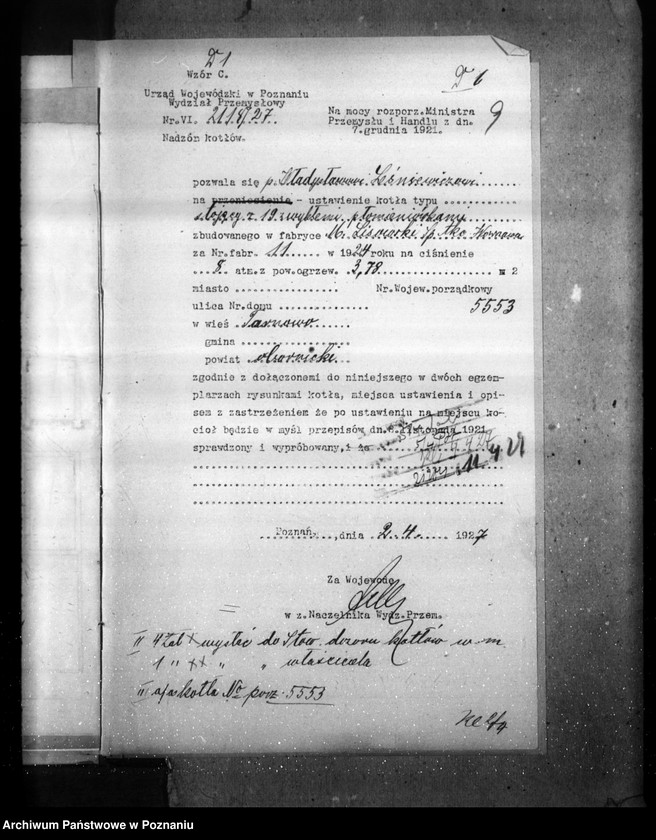 D 1
Wzór C.
D 6
9
Urząd Wojewódzki w Poznaniu
Wydział Przemysłowy
Nr.VI. 27.
Nadzór kotłów.
Na mocy rozporz.Ministra
Przemysłu i Handlu z dn.
7.grudnia 1921.
pozwala się p. Władysławowi Leśniewiczowi
na przeniesienie - ustawienie kotła typu
stojący z 19 zwykłemi płomieniówkami
zbudowanego w fabryce
za Nr.fabr. 11 w 1924 roku na ciśnienie
8. atm.z pow.ogrzew. 3,78 m 2
miasto Nr.Wojew.porządkowy
ulica Nr.domu 5553
w wieś Tarnowo
gmina
powiat obornicki
zgodnie z dołączonemi do niniejszego w dwóch egzem-
plarzach rysunkami kotła, miejsca ustawienia i opi-
sem z zastrzeżeniem że po ustawieniu na miejscu ko-
cioł będzie w myśl przepisów dn.6.listopnia 1921
sprawdzony i wypróbowany,i że
11.4.27
Poznań, dnia 2.4. 1927
Za Wojewodę
w z.Naczelnika Wydz.Przem.
II 4 zał x wysłać do Stow. dozoru kotłów w m.
1 " xx " " właściciela
III a/a kotła No porz. 5553